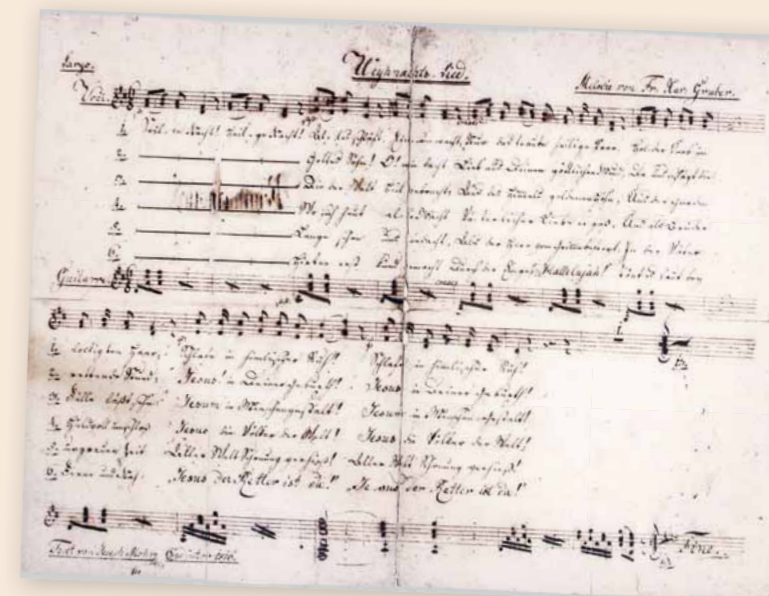 Weyhnachts-Lied.
Largo.
Melodie von Fr. Xav. Gruber.
Voci.
1. Stille Nacht! Heilige Nacht! Alles schläft, Einsam wacht, Nur das traute heilige Paar. Holder Knab im
2. Gottes Sohn! O! wie lacht Lieb aus Deinem göttlichen Mund, Da schlägt die
3. Die der Welt Heil gebracht, Aus des Himmels goldenen Höhn, Aus der Gnaden
4. Wo sich heut alle Macht Väterlicher Liebe ergoß, Und als Bruder
5. Lange schon Uns bedacht, Als der Herr vom Grimme befreit, In der Väter
6. Hirten erst Kund gemacht Durch der Engel Hallelujah! Tönt es laut bey
Guitarre.
1. lockigten Haar, Schlafe in himmlischer Ruh! Schlafe in himmlischer Ruh!
2. rettende Stund: Jesus! in Deiner Geburth! Jesus in Deiner Geburth!
3. Fülle läßt sehn Jesum in Menschengestalt! Jesum in Menschengestalt!
4. huldvoll umschloß Jesus die Völker der Welt! Jesus die Völker der Welt!
5. urgrauer Zeit Aller Welt Schonung verhieß! Aller Welt Schonung verhieß!
6. Ferne und Nah: "Jesus der Retter ist da!" "Jesus der Retter ist da!"
Fine.
Text von Joseph Mohr